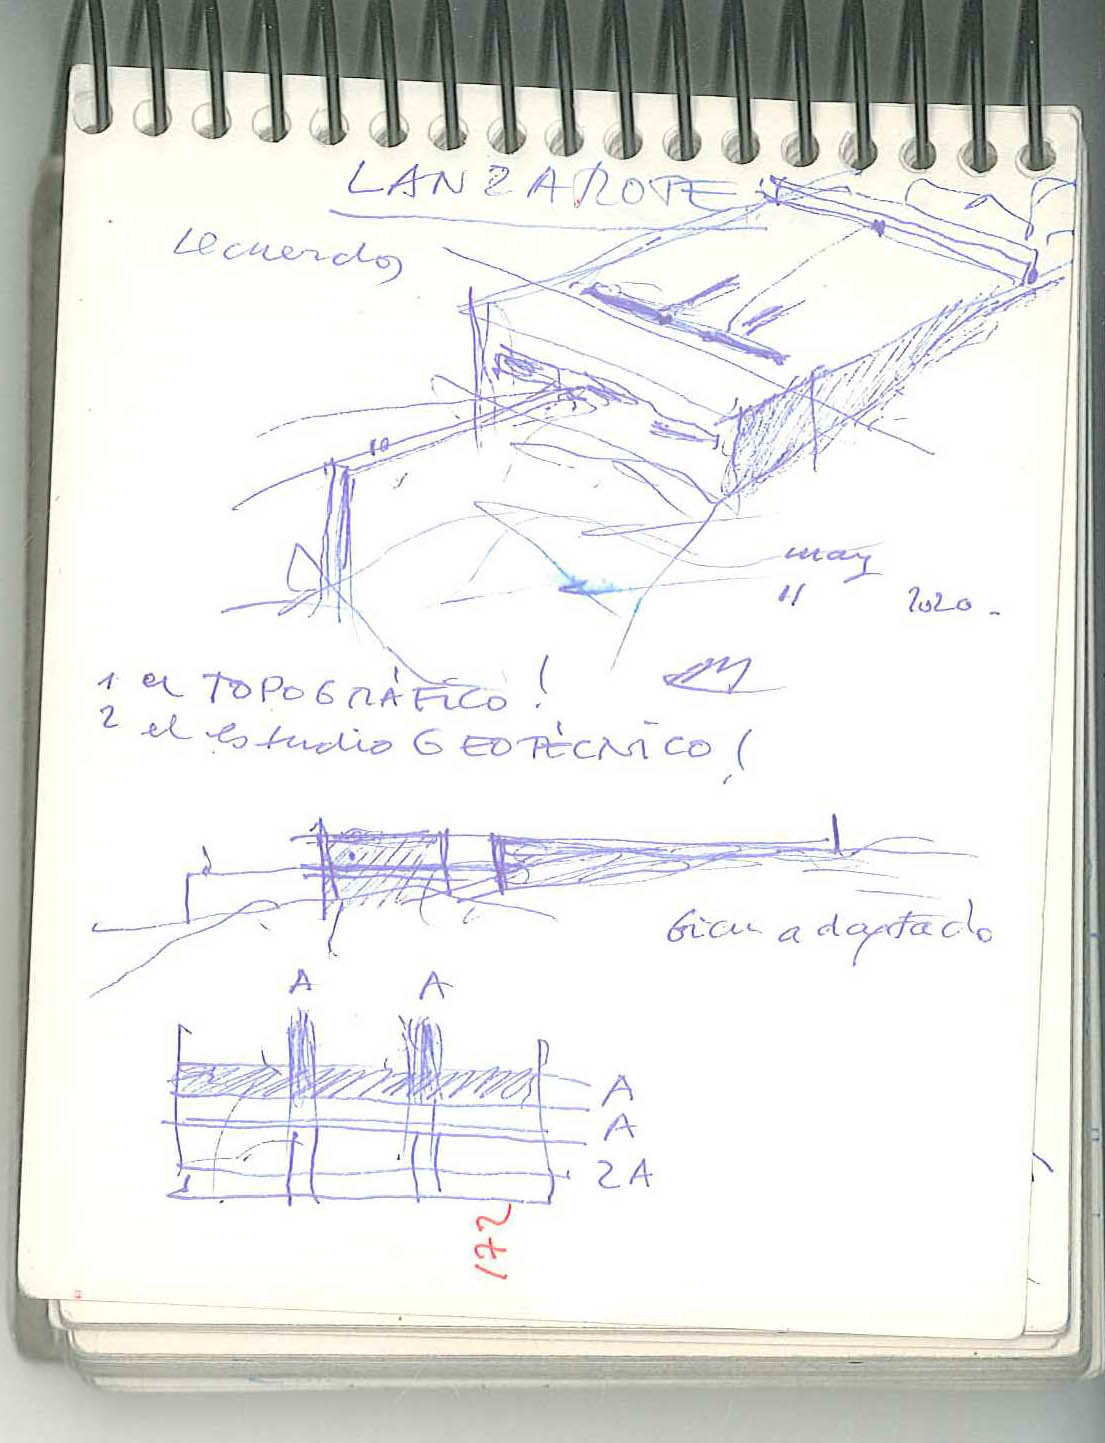 LANZAROTE
recuerdos
may
11 2020.
1 el TOPOGRÁFICO!
2 el estudio GEOTÉCNICO!
bien adaptado
A A
A
A
2A
172